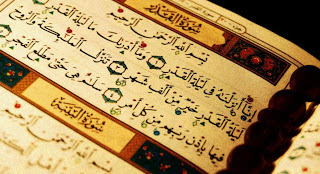 سُورَةُ القَدْرِ
بِسْمِ اللَّهِ الرَّحْمَٰنِ الرَّحِيمِ
إِنَّا أَنزَلْنَٰهُ فِي لَيْلَةِ الْقَدْرِ ۝ وَمَا أَدْرَىٰكَ مَا لَيْلَةُ الْقَدْرِ ۝
لَيْلَةُ الْقَدْرِ خَيْرٌ مِّنْ أَلْفِ شَهْرٍ ۝ تَنَزَّلُ الْمَلَٰئِكَةُ وَالرُّوحُ
فِيهَا بِإِذْنِ رَبِّهِم مِّن كُلِّ أَمْرٍ ۝ سَلَٰمٌ هِيَ حَتَّىٰ مَطْلَعِ الْفَجْرِ
سُورَةُ البَيِّنَةِ
بِسْمِ اللَّهِ الرَّحْمَٰنِ الرَّحِيمِ